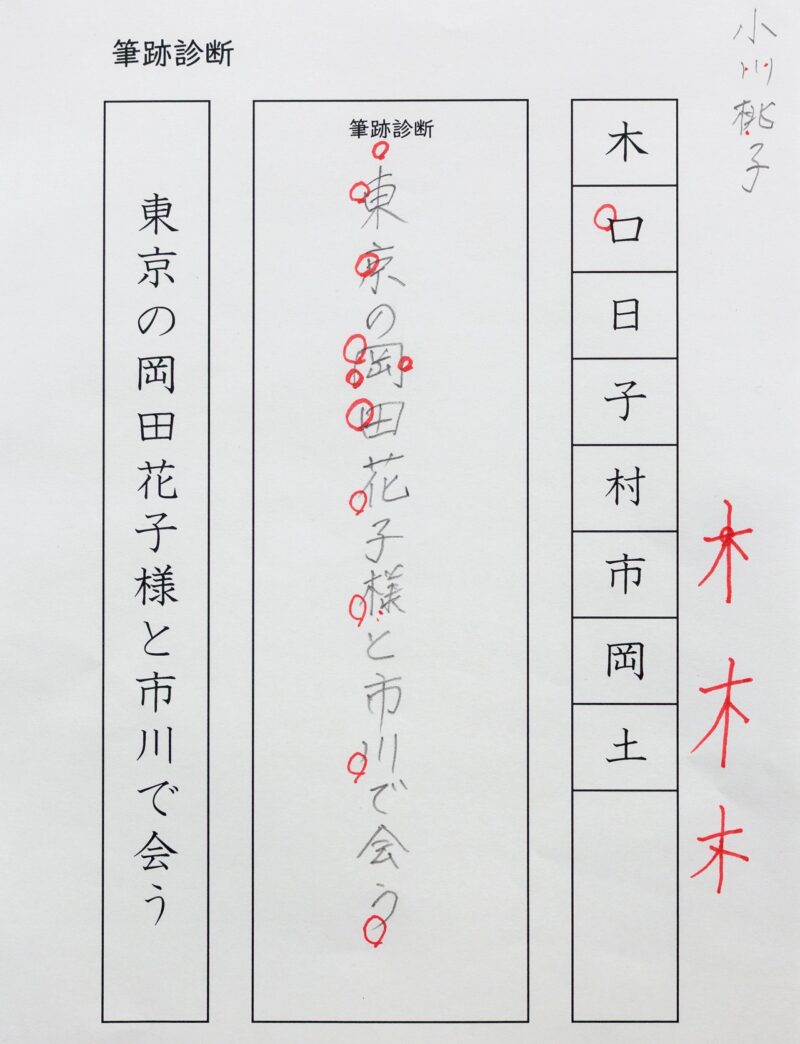 筆跡診断
小川桃子
木
口
日
子
村
市
岡
土
木
木
木
筆跡診断
東京の岡田花子様と市川で会う
東京の岡田花子様と市川で会う